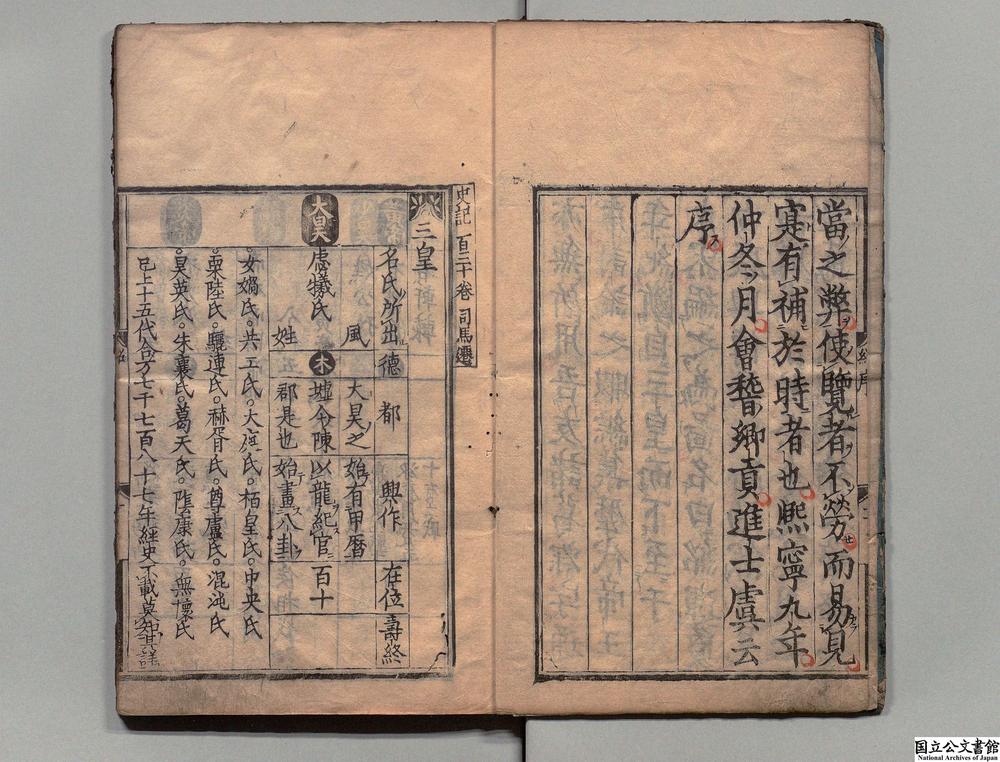 當之弊使覽者不勞而易見
寔有補於時者也熙寧九年
仲冬月會嵆卿貢進士虞云
序
史記 一百三十卷 司馬遷
三皇
名氏所出 德 都 興作 在位 壽終
大昊
虙犧氏 風姓 木 大昊之墟今陳郡是也 始有甲曆以龍紀官始畫八卦 百十
女媧氏。共工氏。大庭氏。栢皇氏。中央氏
栗陸氏。驪連氏。赫胥氏。尊盧氏。混沌氏
。昊英氏。朱襄氏。葛天氏。陰康氏。無懷氏
已上十五代合万七千七百八十七年經史不載莫知其詳
国立公文書館
National Archives of Japan